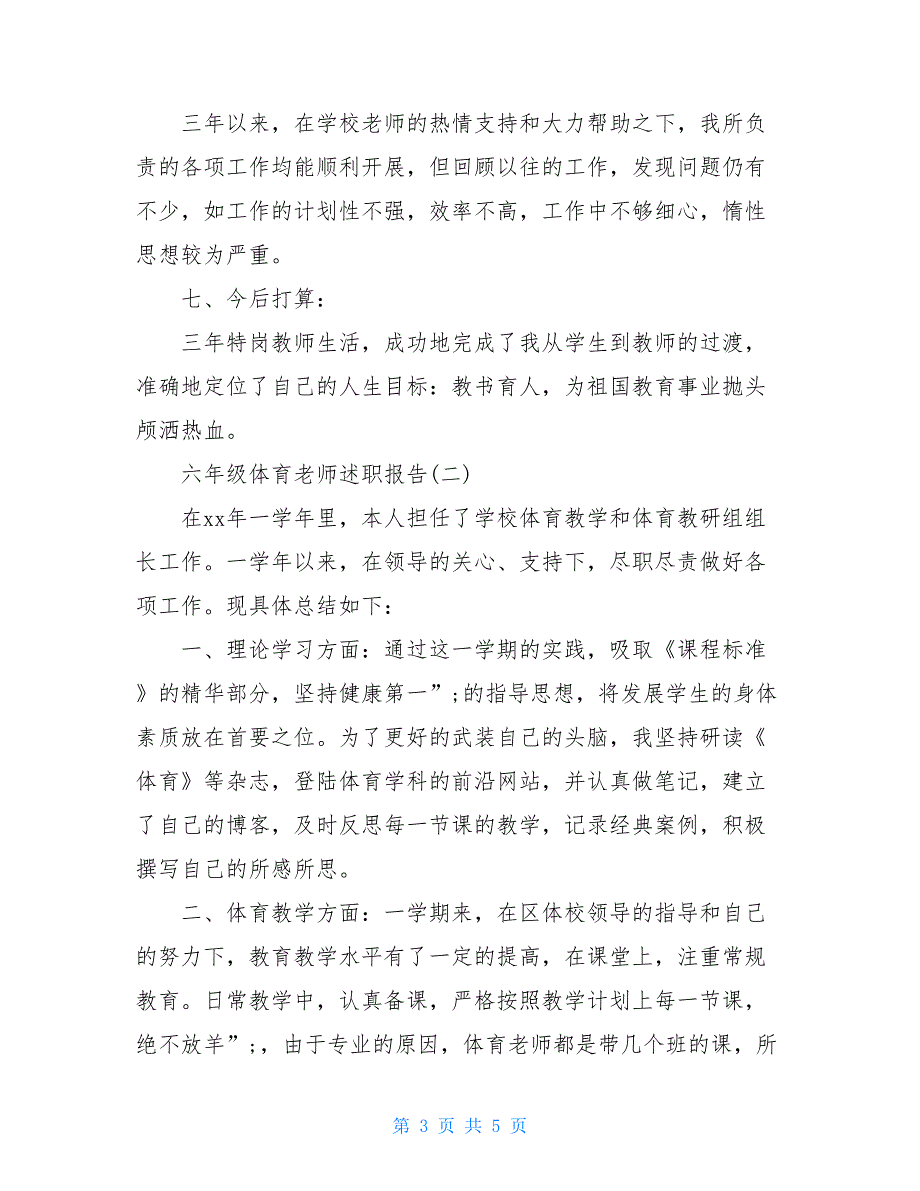 三年以来，在学校老师的热情支持和大力帮助之下，我所负
责的各项工作均能顺利开展，但回顾以往的工作，发现问题仍有
不少，如工作的计划性不强，效率不高，工作中不够细心，惰性
思想较为严重。
七、今后打算：
三年特岗教师生活，成功地完成了我从学生到教师的过渡，
准确地定位了自己的人生目标：教书育人，为祖国教育事业抛头
颅洒热血。
六年级体育老师述职报告(二)
在xx年一学年里，本人担任了学校体育教学和体育教研组组
长工作。一学年以来，在领导的关心、支持下，尽职尽责做好各
项工作。现具体总结如下：
一、理论学习方面：通过这一学期的实践，吸取《课程标准
》的精华部分，坚持健康第一”;的指导思想，将发展学生的身体
素质放在首要之位。为了更好的武装自己的头脑，我坚持研读《
体育》等杂志，登陆体育学科的前沿网站，并认真做笔记，建立
了自己的博客，及时反思每一节课的教学，记录经典案例，积极
撰写自己的所感所思。
二、体育教学方面：一学期来，在区体校领导的指导和自己
的努力下，教育教学水平有了一定的提高，在课堂上，注重常规
教育。日常教学中，认真备课，严格按照教学计划上每一节课，
绝不放羊”;，由于专业的原因，体育老师都是带几个班的课，所
第 3 页 共 5 页